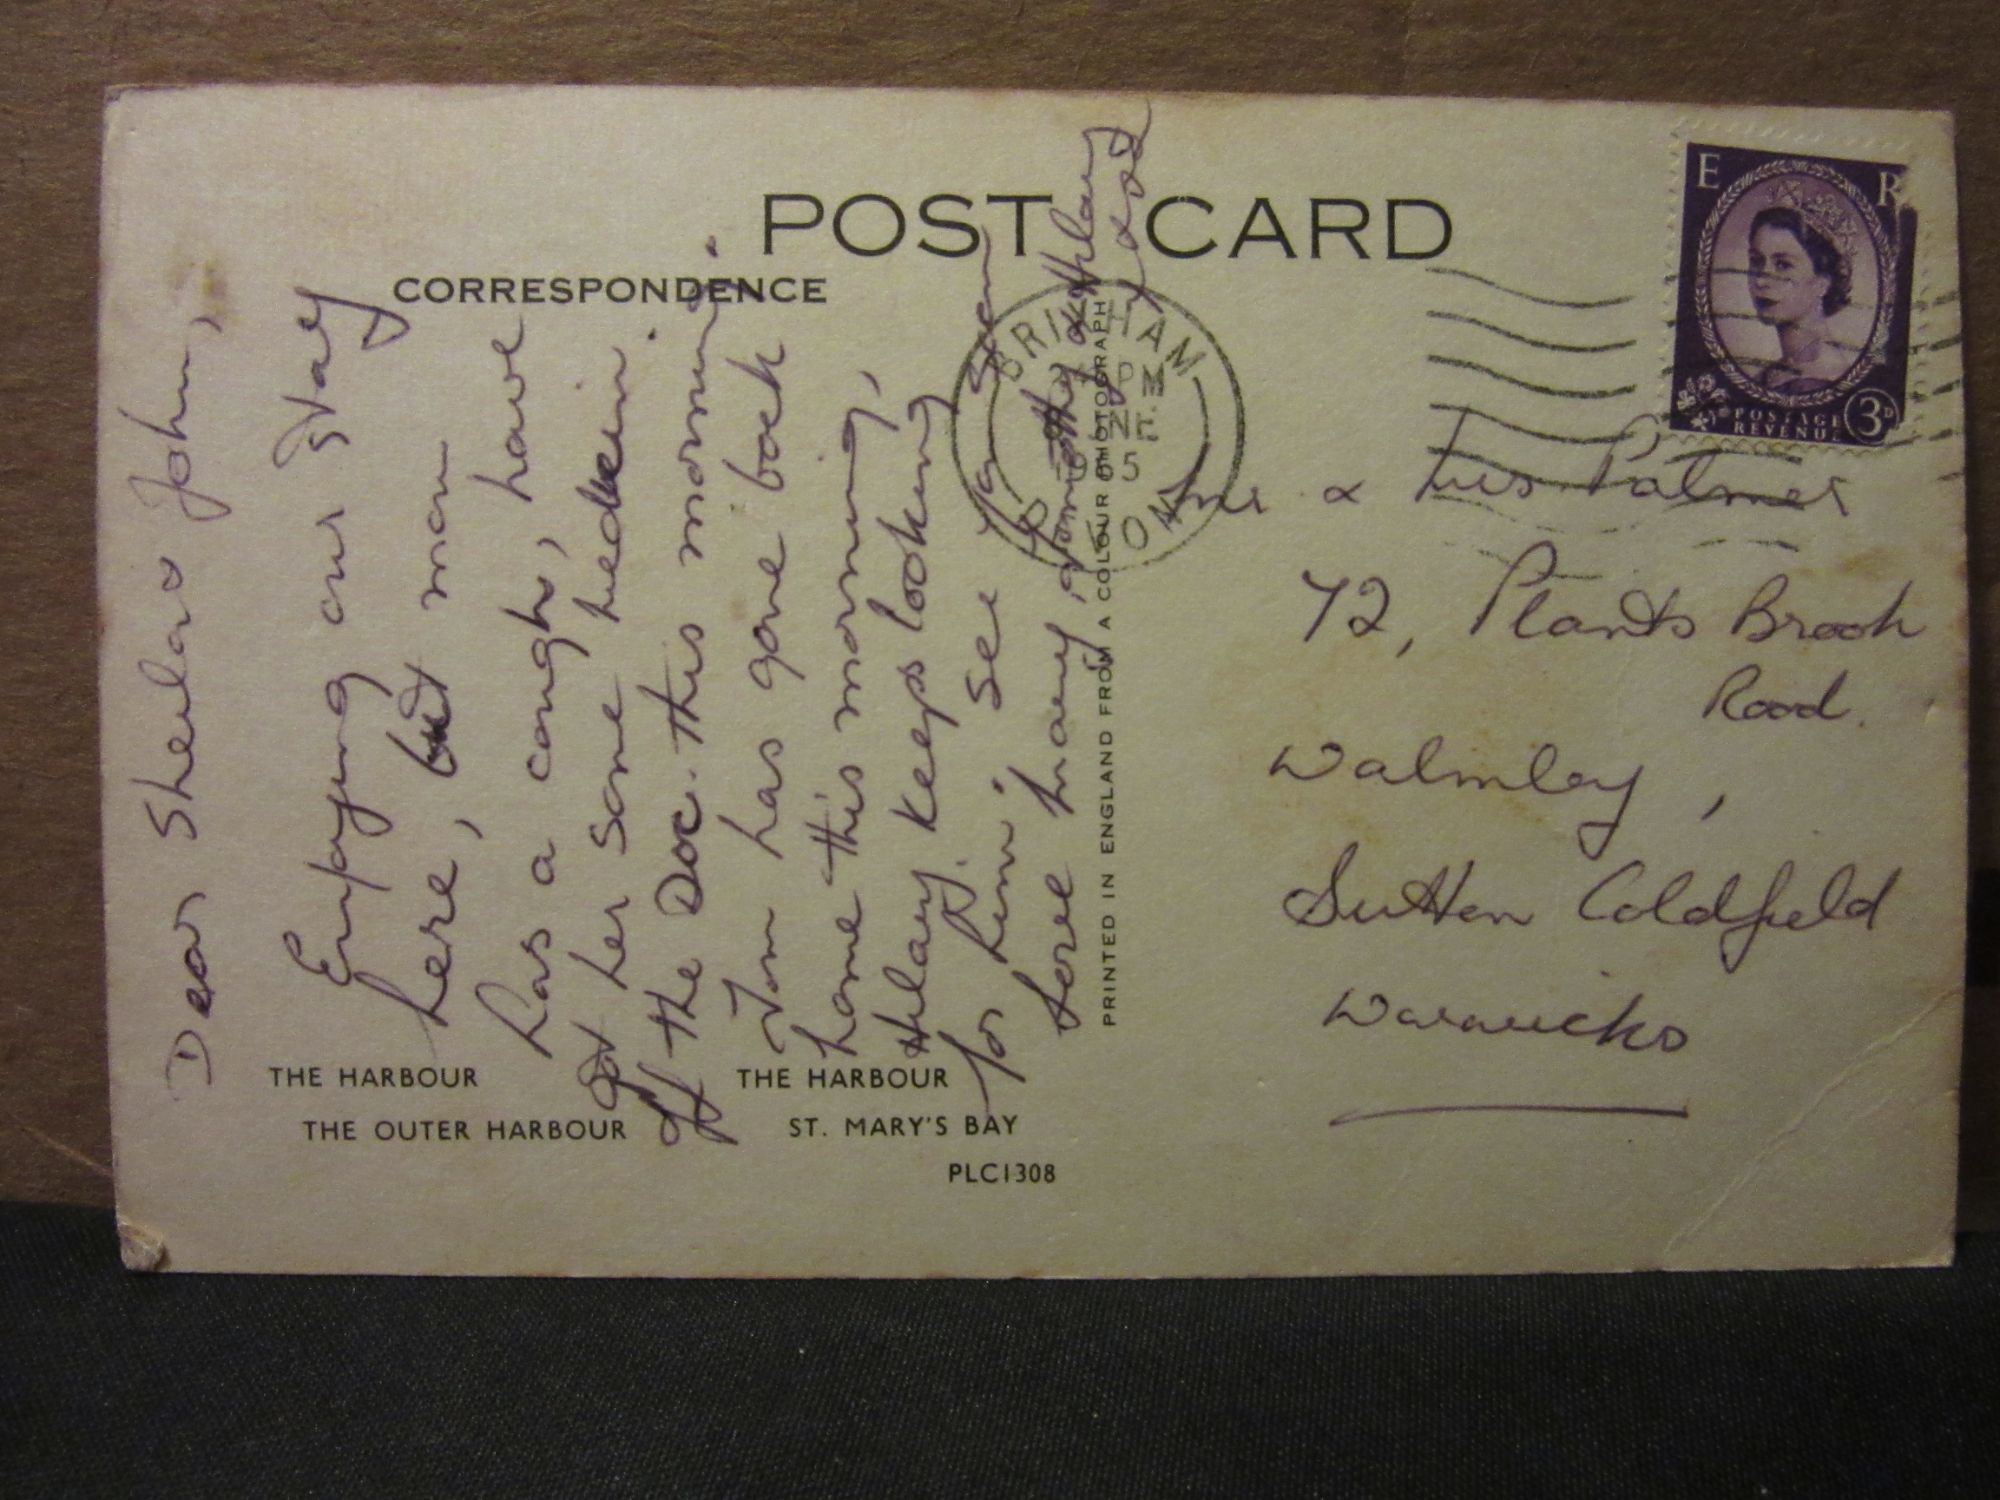 POST CARD
CORRESPONDENCE
Dear Sheila & John,
Enjoying our stay
here, but mam
has a cough, have
got her some medecin
off the Doc. this morning.
Tom has gone back
home this morning,
Hilary keeps looking
for him. See you soon
love mary, timothy & Hilary
PRINTED IN ENGLAND FROM A COLOUR PHOTOGRAPH
THE HARBOUR
THE OUTER HARBOUR
THE HARBOUR
ST. MARY'S BAY
PLC1308
BRIXHAM
PM
DEVON
E R
POSTAGE
REVENUE
3D
Mr & Mrs Palmer
72, Plants Brook
Road.
Walmley,
Sutton Coldfield
Warwicks